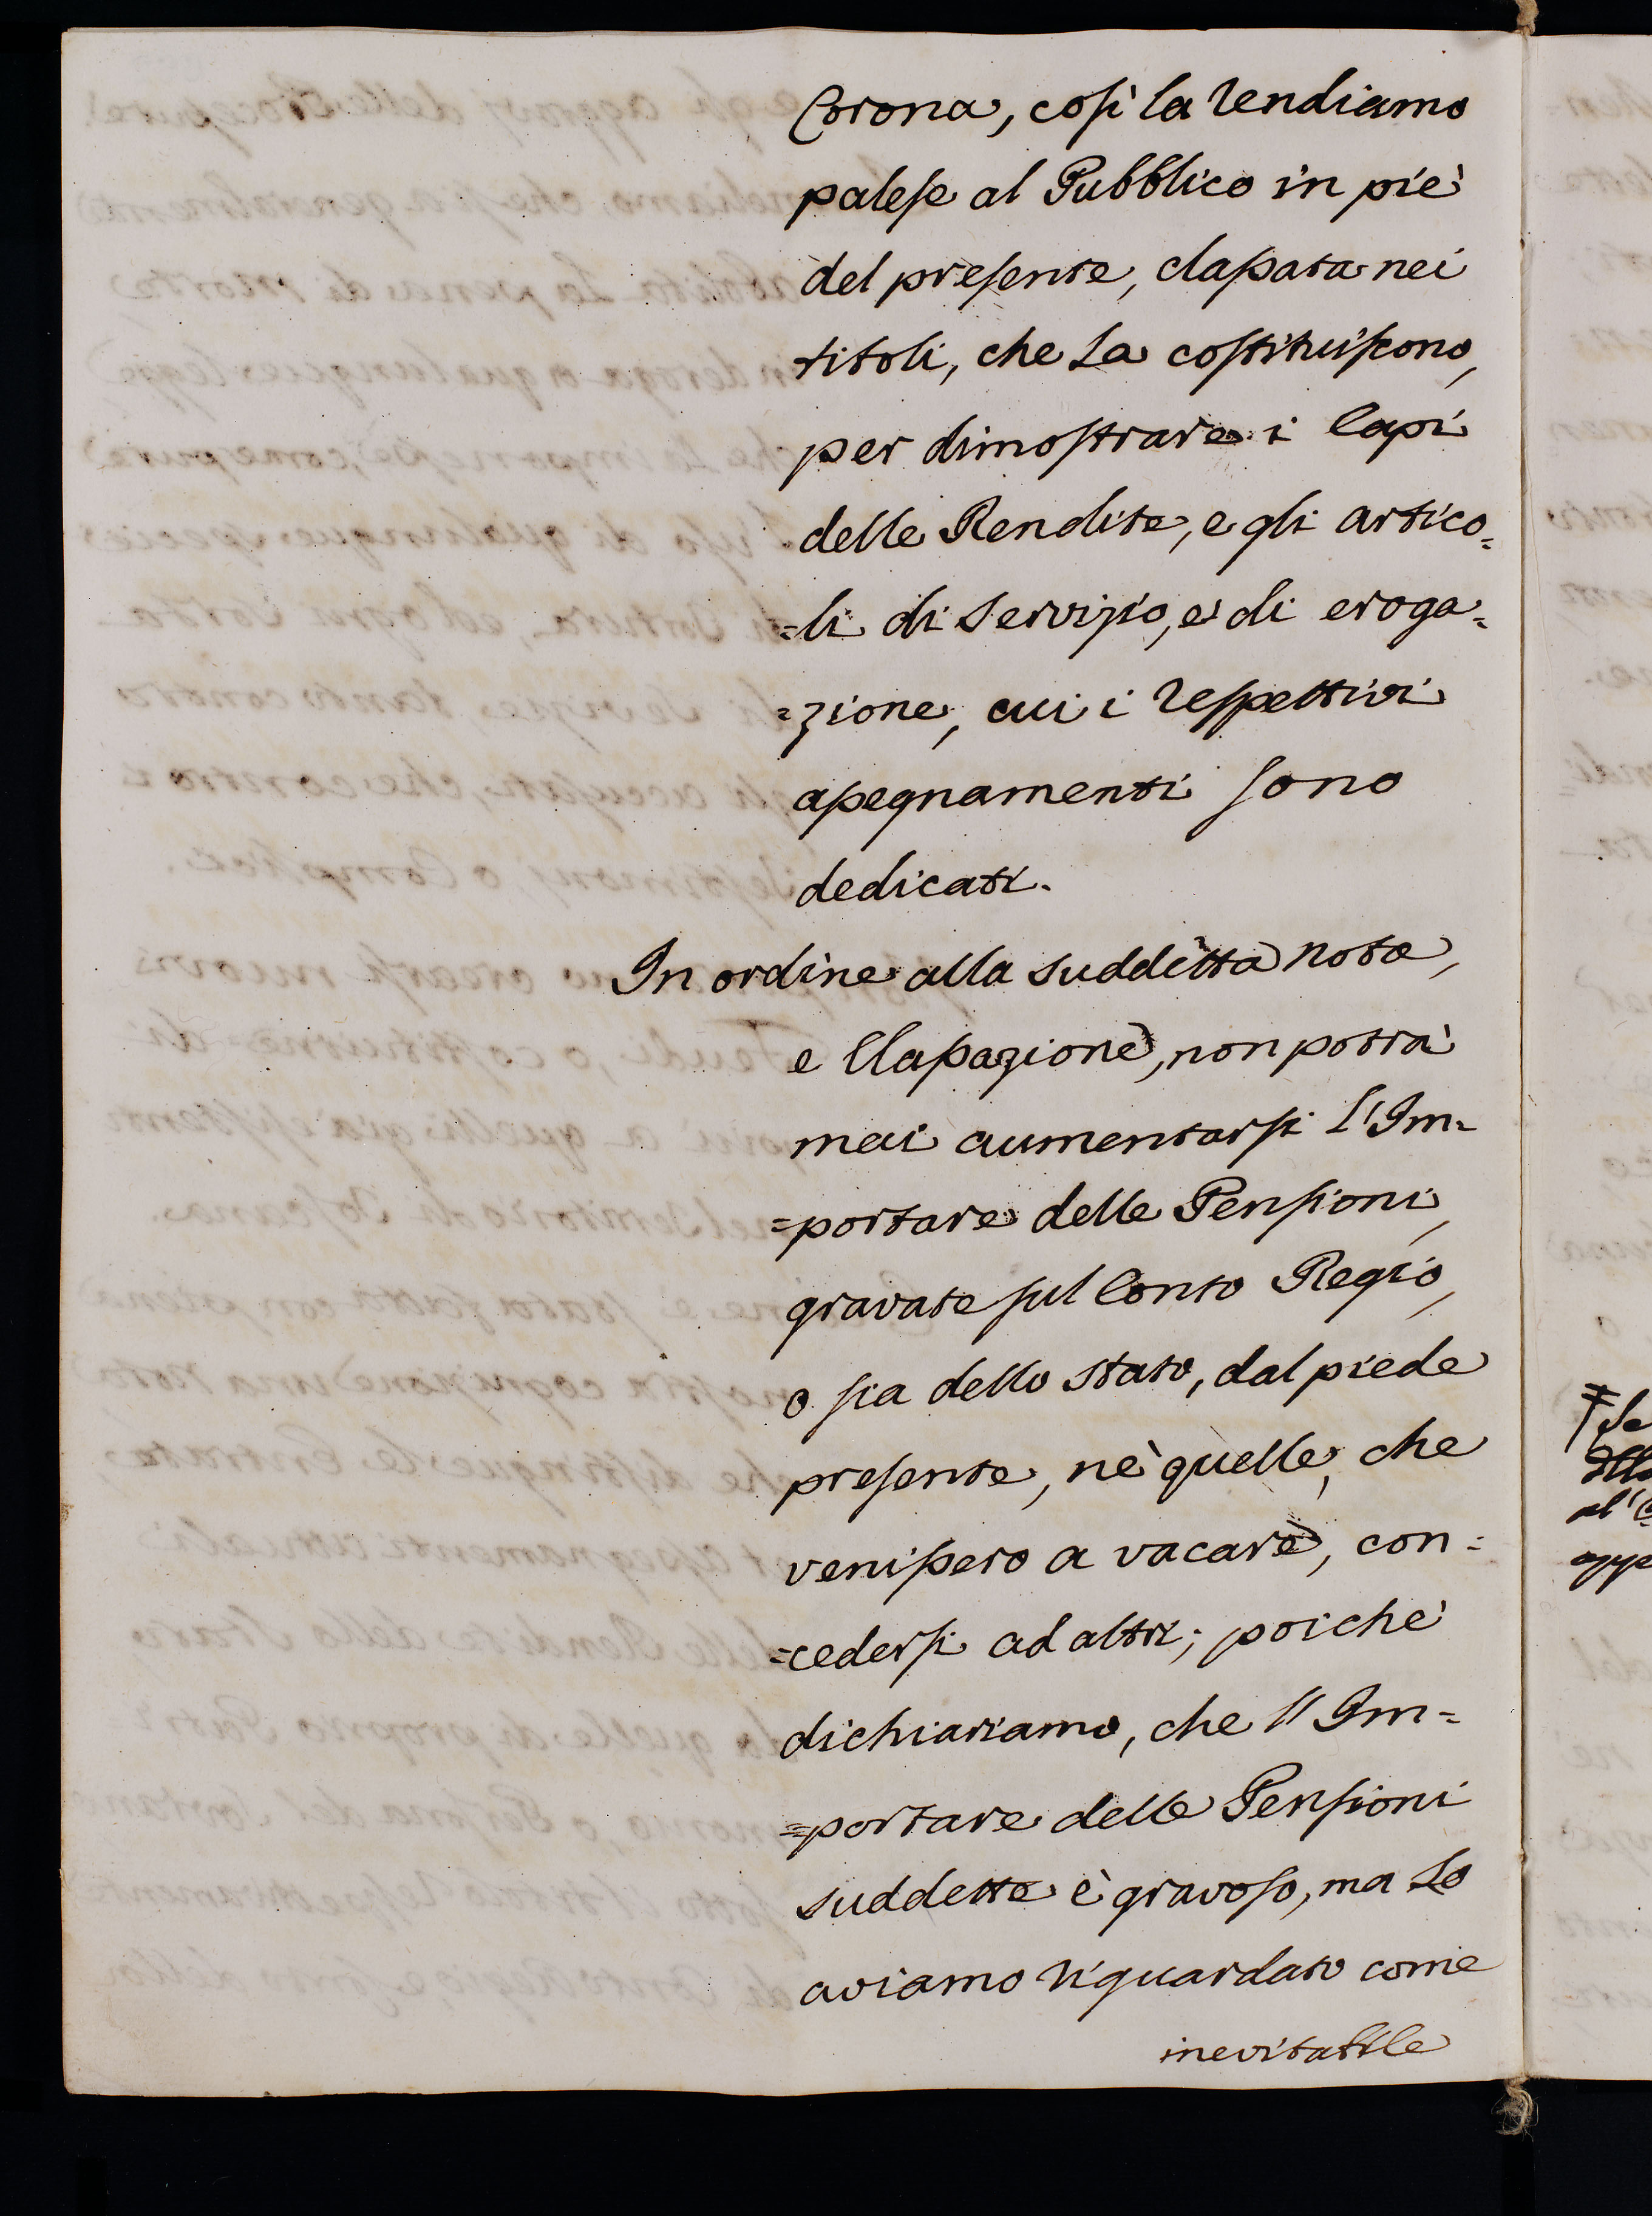 Corona, così la rendiamo
palese al Pubblico in piè
del presente, classata nei
titoli, che la costituiscono,
per dimostrare i Capi
delle Rendite, e gli artico=
=li di servizio, e di eroga=
=zione, cui i respettivi
assegnamenti sono
dedicati.
In ordine alla suddetta nota,
e Classazione, non potrà
mai aumentarsi l'Im=
=portare delle Pensioni,
gravate sul Conto Regio,
o sia dello stato, dal piede
presente, nè quelle, che
venissero a vacare, con=
=cedersi ad altri; poichè
dichiariamo, che l'Im=
=portare delle Pensioni
suddette è gravoso, ma lo
aviamo riguardato come
inevitabile